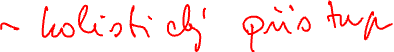 ~ holistický přístup